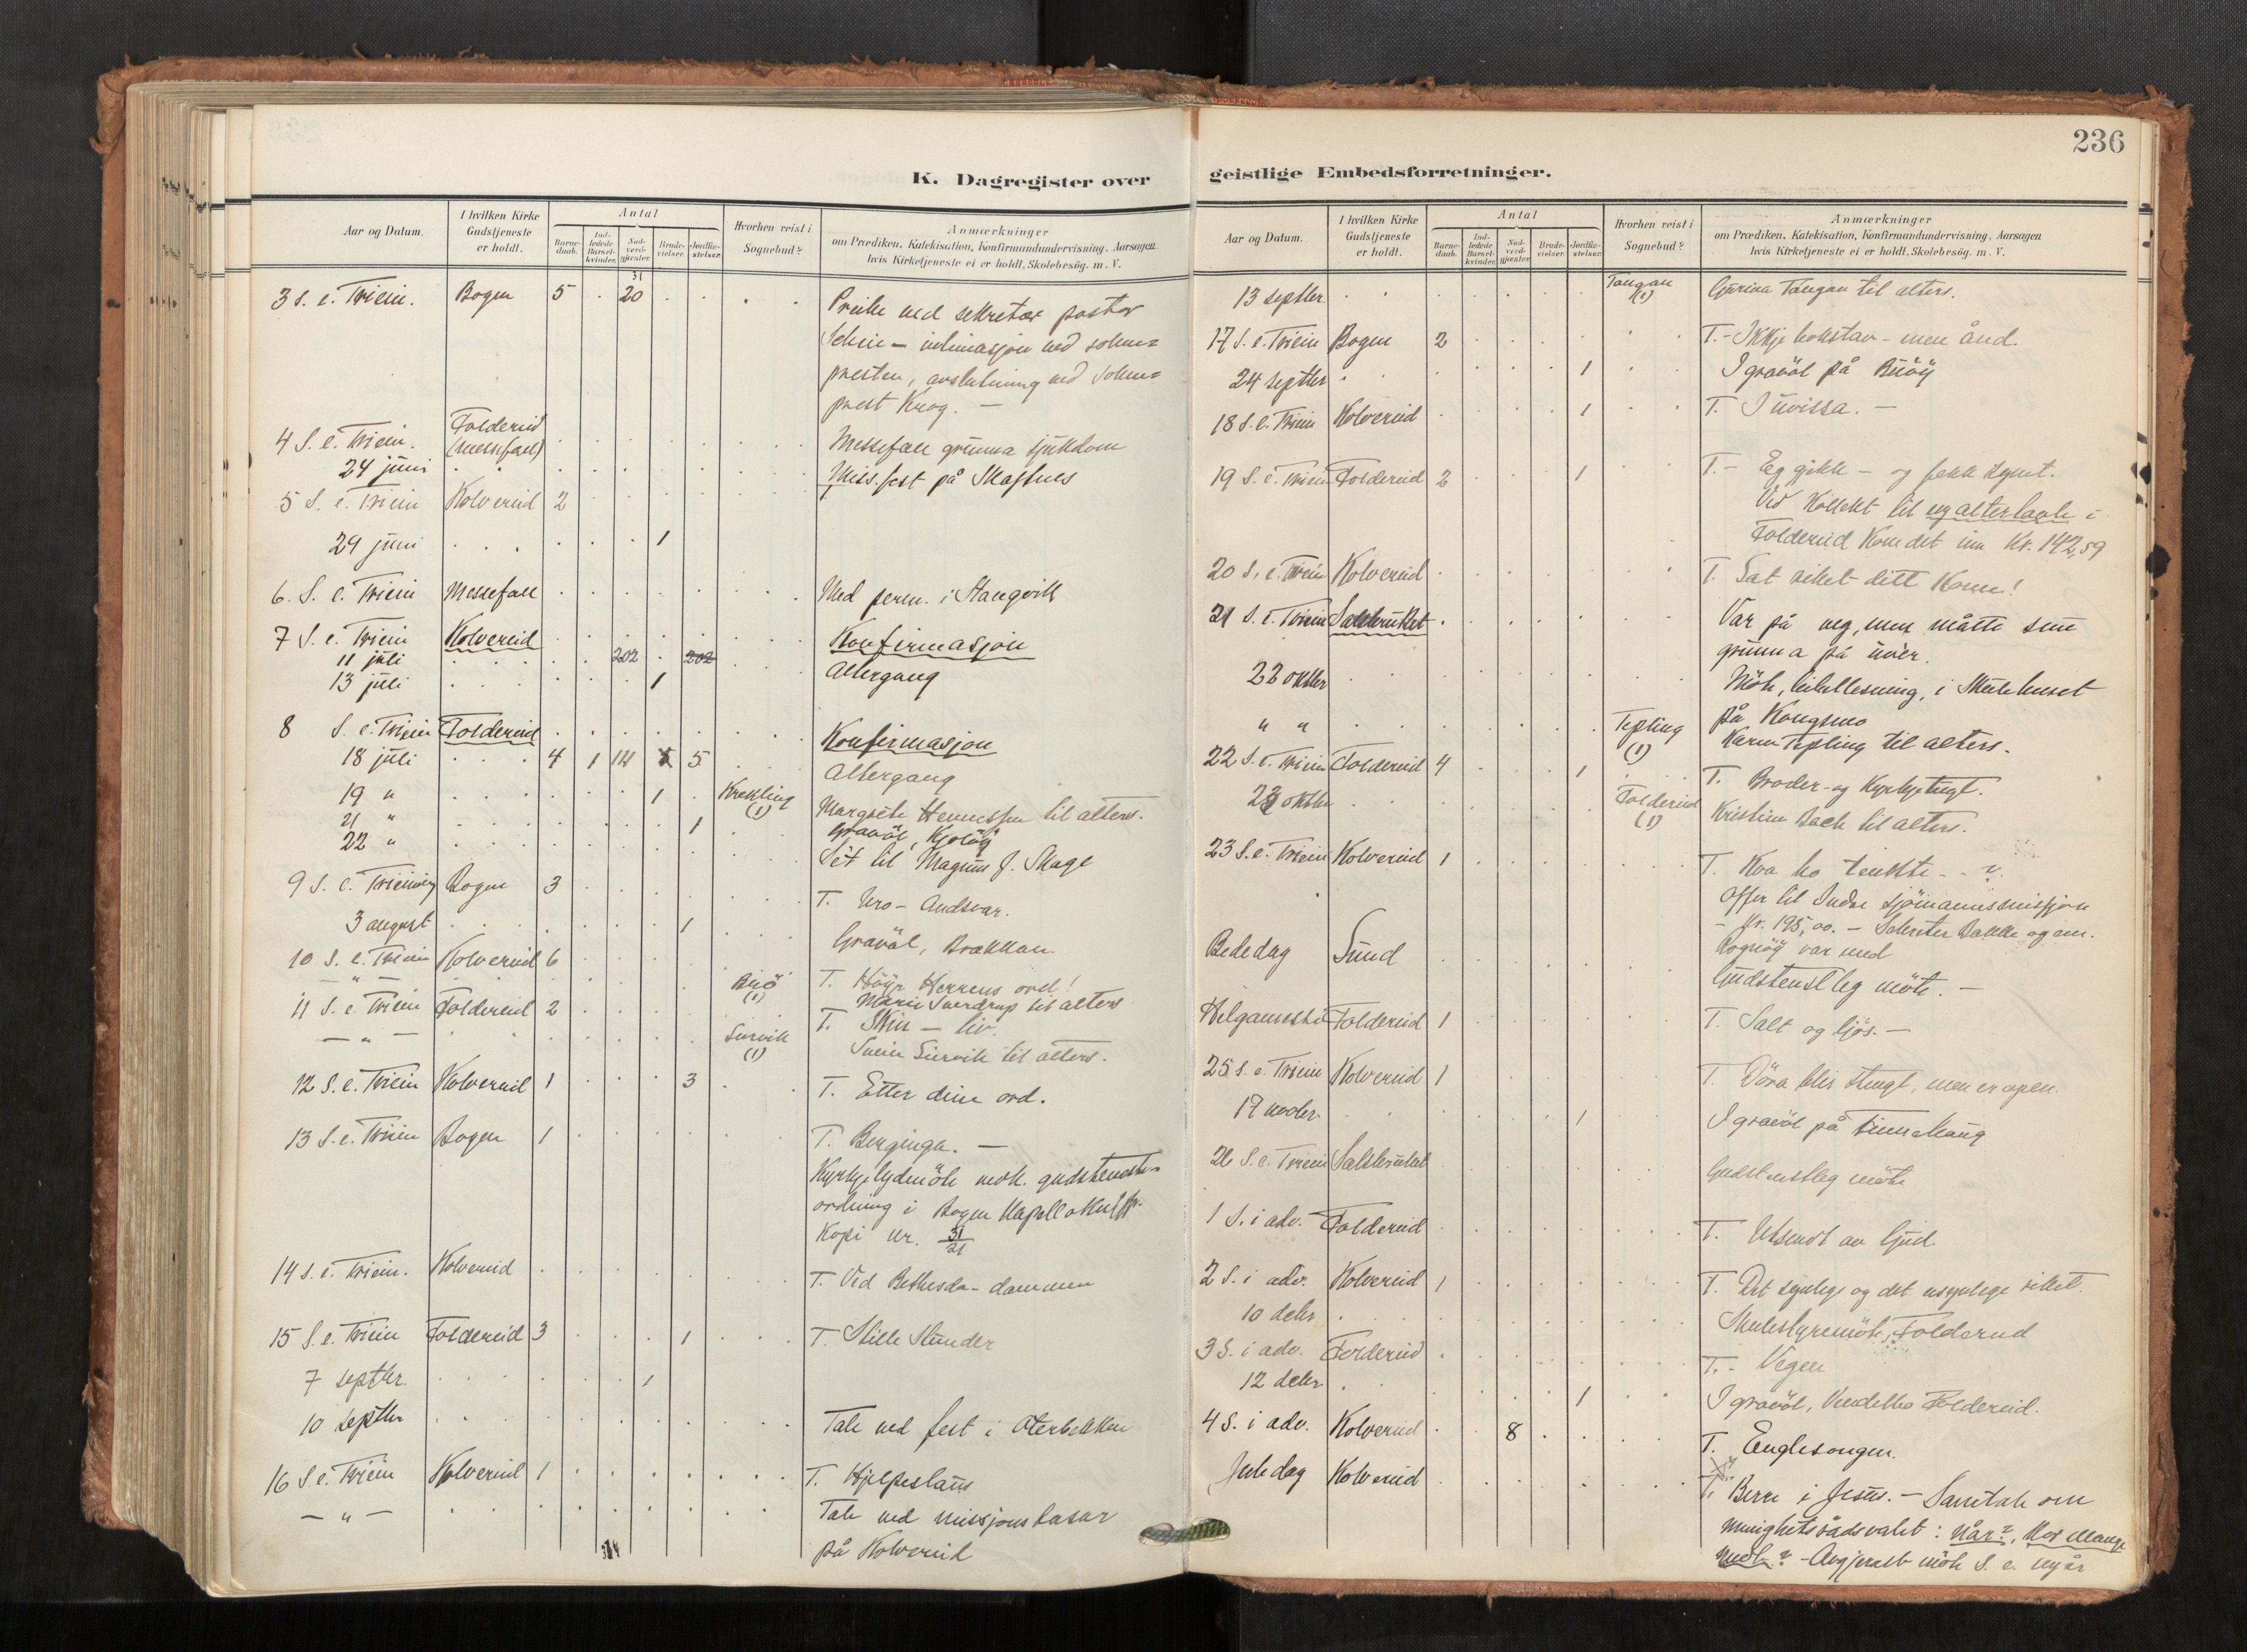 236
K. Dagregister over geistlige Embedsforretninger.
Aar og Datum. I hvilken Kirke Gudstjeneste er holdt. Antal Barne-daab. Ind-ledede Barsel-kvinder. Nad-verd-gjæster. Brude-vielser. Jordfæ-stelser. Hvorhen reist i Sognebud? Anmærkninger om Prædiken, Katekisation, Konfirmandundervisning, Aarsagen hvis Kirketjeneste ei er holdt, Skolebesøg. m. V.
31
3 S. e. Trein. Bogen 5 . 20 . . . .
Preike ved sekretær pastor
- intimasjon ved sokne-
presten, avslutning ved sokne-
prest Krog. -
4 S. e. Trein. Foldereid (messefall) Messefall grunna sjukdom
24 juni Miss.fest på
5 S. e. Trein Kolvereid 2
29 juni 1
6. S. e. Trein Messefall Med perm. i Stangvik
7 S. e. Trein Kolvereid Konfirmasjon
11 juli 202 202 Altergang
13 juli 1
8 S. e. Trein Foldereid Konfirmasjon
18 juli 4 1 114 5 Altergang
19 " 1 Krekling (1) Margrete til alters.
21 " 1 Gravöl,
22 " til Magnus J. Skage
9 S. e. Treining Bogen 3 T. Uro - Andsvar.
3 august 1 Gravöl, Brakkan
10 S. e. Trein Kolvereid 6 T. Höyr Herrens ord!
- " - (1) Marie Sverdrup til alters
11 S. e. Trein Foldereid 2 T. Skin - liv.
- " - Survik (1) Svein Survik til alters.
12 S. e. Trein Kolvereid 1 3 T. Etter dine ord.
13 S. e. Trein Bogen 1 T. Berginga. -
Kyrkjelydmöte vedk. gudstenest-
ordning i Bogen kapellsokn jfr.
Kopi nr. 31/21
14 S. e. Trein. Kolvereid T. Ved Bethesda-dammen
15 S. e. Trein Foldereid 3 1 T. Stille stunder
7 septbr. 1
10 septbr Tale ved fest i Oterbekken
16 S. e. Trein Kolvereid 1 T. Hjelpeslaus
- " - Tale ved missjonsbasar
på Kolvereid
Aar og Datum. I hvilken Kirke Gudstjeneste er holdt. Antal Barne-daab. Ind-ledede Barsel-kvinder. Nad-verd-gjæster. Brude-vielser. Jordfæ-stelser. Hvorhen reist i Sognebud? Anmærkninger om Prædiken, Katekisation, Konfirmandundervisning, Aarsagen hvis Kirketjeneste ei er holdt, Skolebesøg. m. V.
13 septbr Tangan (1) Gurina Tangan til alters.
17 S. e. Trein Bogen 2 T. - Ikkje bokstav - men ånd.
24 septbr 1 I gravöl på
18 S. e. Trein Kolvereid 1 T. I uvissa. -
19 S. e. Trein Foldereid 2 1 T. - Eg gjekk - og fekk synet.
Ved kollekt til ny altertavle i
Foldereid kom det inn Kr. 142,59
20 S. e. Trein Kolvereid T. Lat riket ditt koma!
21 S. e. Trein Salsbruket Var på veg, men måtte snu
grunna på uvêr.
22 oktbr Möte, bibellesning, i Skulehuset
på Kongsmo
" " Tepling (1) Karen Tepling til alters.
22 S. e. Trein Foldereid 4 1 T. Broder- og kyrkjetugt.
23 oktbr Foldereid (1) Kristine Bach til alters.
23 S. e. Trein Kolvereid 1 T. Kva ho tenkte - - ?
Offer til Indre sjömannsmissjon
- Kr. 195,00. - Sekretær Bakke og em.
var med
Bededag Sund Gudstenstleg möte. -
Helgamesse Foldereid 1 T. Salt og ljos. -
25 S. e. Trein Kolvereid 1 T. Döra blir stengt, men er open.
17 novbr. 1 I gravöl på
26 S. e. Trein Salsbruket Gudstenstleg möte
1 S. i adv. Foldereid T. Utsendt av Gud
2 S. i adv. Kolvereid 1 T. Det synlege og det usynlege riket.
10 debr Skulestyremöte, Foldereid
3 S. i adv. Foldereid T. - Vegen
12 debr 1 I gravöl, Foldereid.
4 S. i adv. Kolvereid 8 T. Englesongen.
Juledag Kolvereid T. Berre i Jesus. - Samtale om
menighetsrådsvalet: når?, Kor mange
- Avgjerast möte S. e. nyår